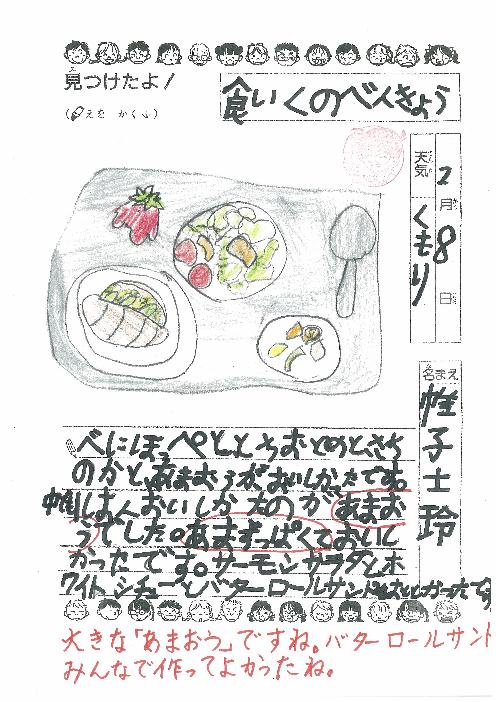 見つけたよ!
(えを かくふ)
食いくのべんきょう
天気 くもり
2月8日
名まえ 帷子士玲
べにほっぺととちおとめとさち
のかとあまおうがおいしかたです。
中でもいちばんおいしかたのがあまお
うでした。あまずっぱくておいし
かったです。サーモンサラダとホ
ワイトシチューとバターロールサンド
大きな「あまおう」ですね。バターロールサンド
みんなで作ってよかったね。